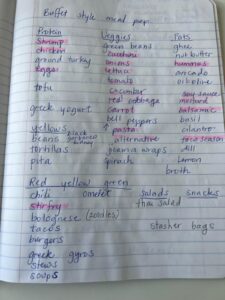 Buffet style meal prep
Protein Veggies Fats
Shrimp green beans ghee
chicken zucchini nut butter
ground turkey onions hummus
eggs lettuce avocado
tomato olive oil
tofu cucumber soy sauce
red cabbage mustard
greek yogurt carrot balsamic
bell peppers basil
yellows ↑ pasta cilantro
beans black garbanzo kidney alternative
tortillas potato wraps dill
pita spinach lemon
broth
Red yellow green
chili omelet salads snacks
stirfry thai salad
bolognese (zoodles)
tacos stasher bags
burgers
greek gyros
stews
soups